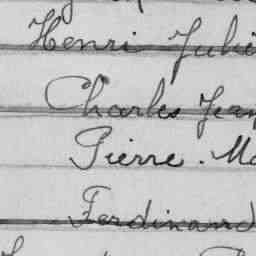 Henri Juli
Charles Jean
Pierre. Ma
Ferdinand